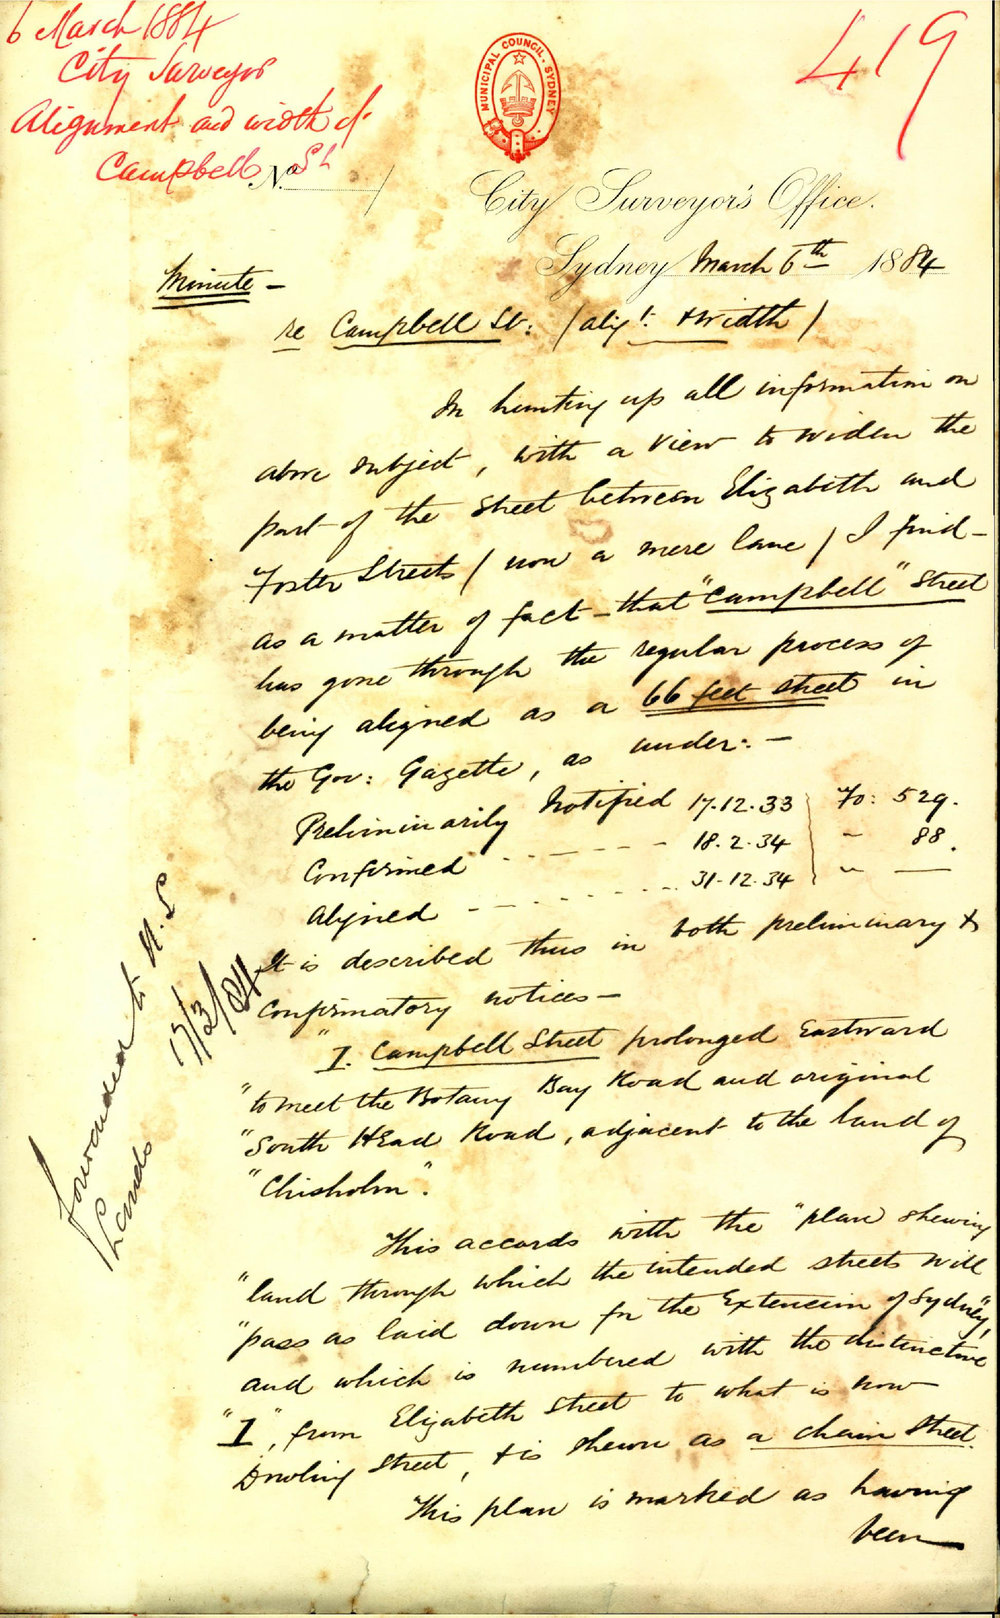 6 March 1884
City Surveyor
Alignment and width of
Campbell St
419
MUNICIPAL COUNCIL. SYDNEY
No.
City Surveyor's Office.
Sydney March 6th 1884
Minute -
re Campbell St: (aligt: & width)
In hunting up all information on
above subject, with a view to widen the
part of the street between Elizabeth and
Foster Streets (now a mere lane) I find -
as a matter of fact - that "Campbell" Street
has gone through the regular process of
being aligned as a 66 feet street in
the Gov: Gazette, as under: -
Preliminarily Notified 17.12.33 Fo: 529.
Confirmed 18.2.34 " 88.
Aligned 31.12.34 " —
It is described thus in both preliminary &
Confirmatory notices -
"I. Campbell Street prolonged Eastward
"to meet the Botany Bay Road and original
"South Head Road, adjacent to the land of
"Chisholm".
This accords with the "plan shewing
"land through which the intended streets will
"pass as laid down for the Extension of Sydney",
and which is numbered with the distinctive
"I", from Elizabeth Street to what is now
Dowling Street, & is shewn as a chain street.
This plan is marked as having
been
forwarded to
Lands
7/3/84